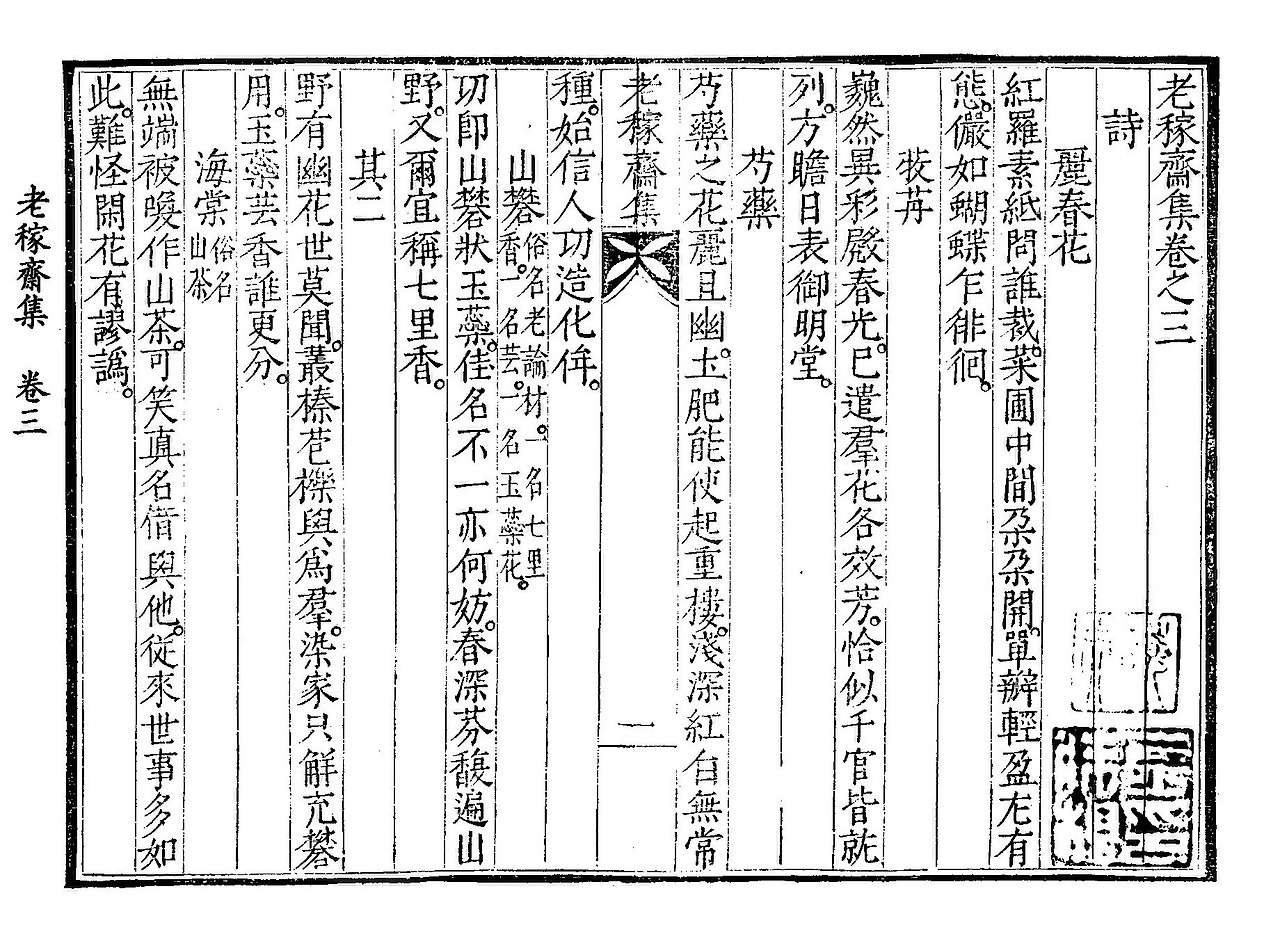 老稼齋集卷之三
詩
麗春花
紅羅素紙問誰裁。菜圃中間朶朶開。單瓣輕盈尤有
態。儼如蝴蝶乍徘徊。
牧丹
巍然異彩殿春光。已遣羣花各效芳。恰似千官皆就
列。方瞻日表御明堂。
芍藥
芍藥之花麗且幽。土肥能使起重樓。淺深紅白無常
種。始信人功造化侔。
老稼齋集 一
山礬 俗名老論材。一名七里
香。一名芸。一名玉蘂花。
切卽山礬狀玉蘂。佳名不一亦何妨。春深芬馥遍山
野。又爾宜稱七里香。
其二
野有幽花世莫聞。叢榛苞櫟與爲羣。染家只解充礬
用。玉蘂芸香誰更分。
海棠 俗名
山茶
無端被喚作山茶。可笑真名借與他。從來世事多如
此。難怪閑花有謬譌。
老稼齋集 卷三